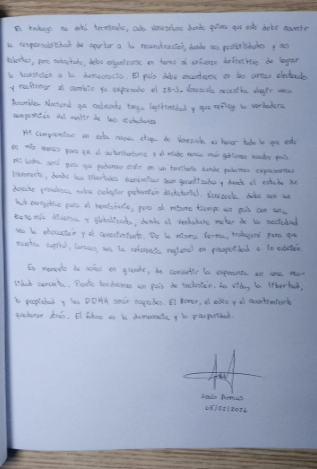 El trabajo no está terminado, cada venezolano donde quiera que esté debe asumir
la responsabilidad de aportar a la reconstrucción, desde sus posibilidades y sus
talentos, pero sobre todo, debe organizarse en torno al esfuerzo definitivo de lograr
la transición a la democracia. El país debe encontrarse en las urnas electorales
y reafirmar el cambio ya expresado el 28-J. Venezuela necesita elegir una
Asamblea Nacional que realmente tenga legitimidad y que refleje la verdadera
composición del sentir de los ciudadanos
Mi compromiso en esta nueva etapa de Venezuela es hacer todo lo que esté
en mis manos para que el autoritarismo y el miedo nunca más gobiernen nuestro país.
Mi lucha será para que podamos vivir en un territorio donde podamos expresarnos
libremente, donde las libertades económicas sean garantizadas y donde el estado de
derecho prevalezca sobre cualquier pretensión dictatorial. Venezuela debe ser un
hub energético para el hemisferio, pero al mismo tiempo un país con una
economía más diversa y globalizada, donde el verdadero motor de la sociedad
sea la educación y el conocimiento. De la misma forma, trabajaré para que
nuestra capital, Caracas, sea la referencia regional en prosperidad e innovación.
Es momento de soñar en grande, de convertir la esperanza en una rea-
lidad concreta. Pronto tendremos un país de inclusión. La vida, la libertad,
la propiedad y los DDHH serán sagrados. El temor, el odio y el resentimiento
quedarán atrás. El futuro es la democracia y la prosperidad.
Jesús Armas